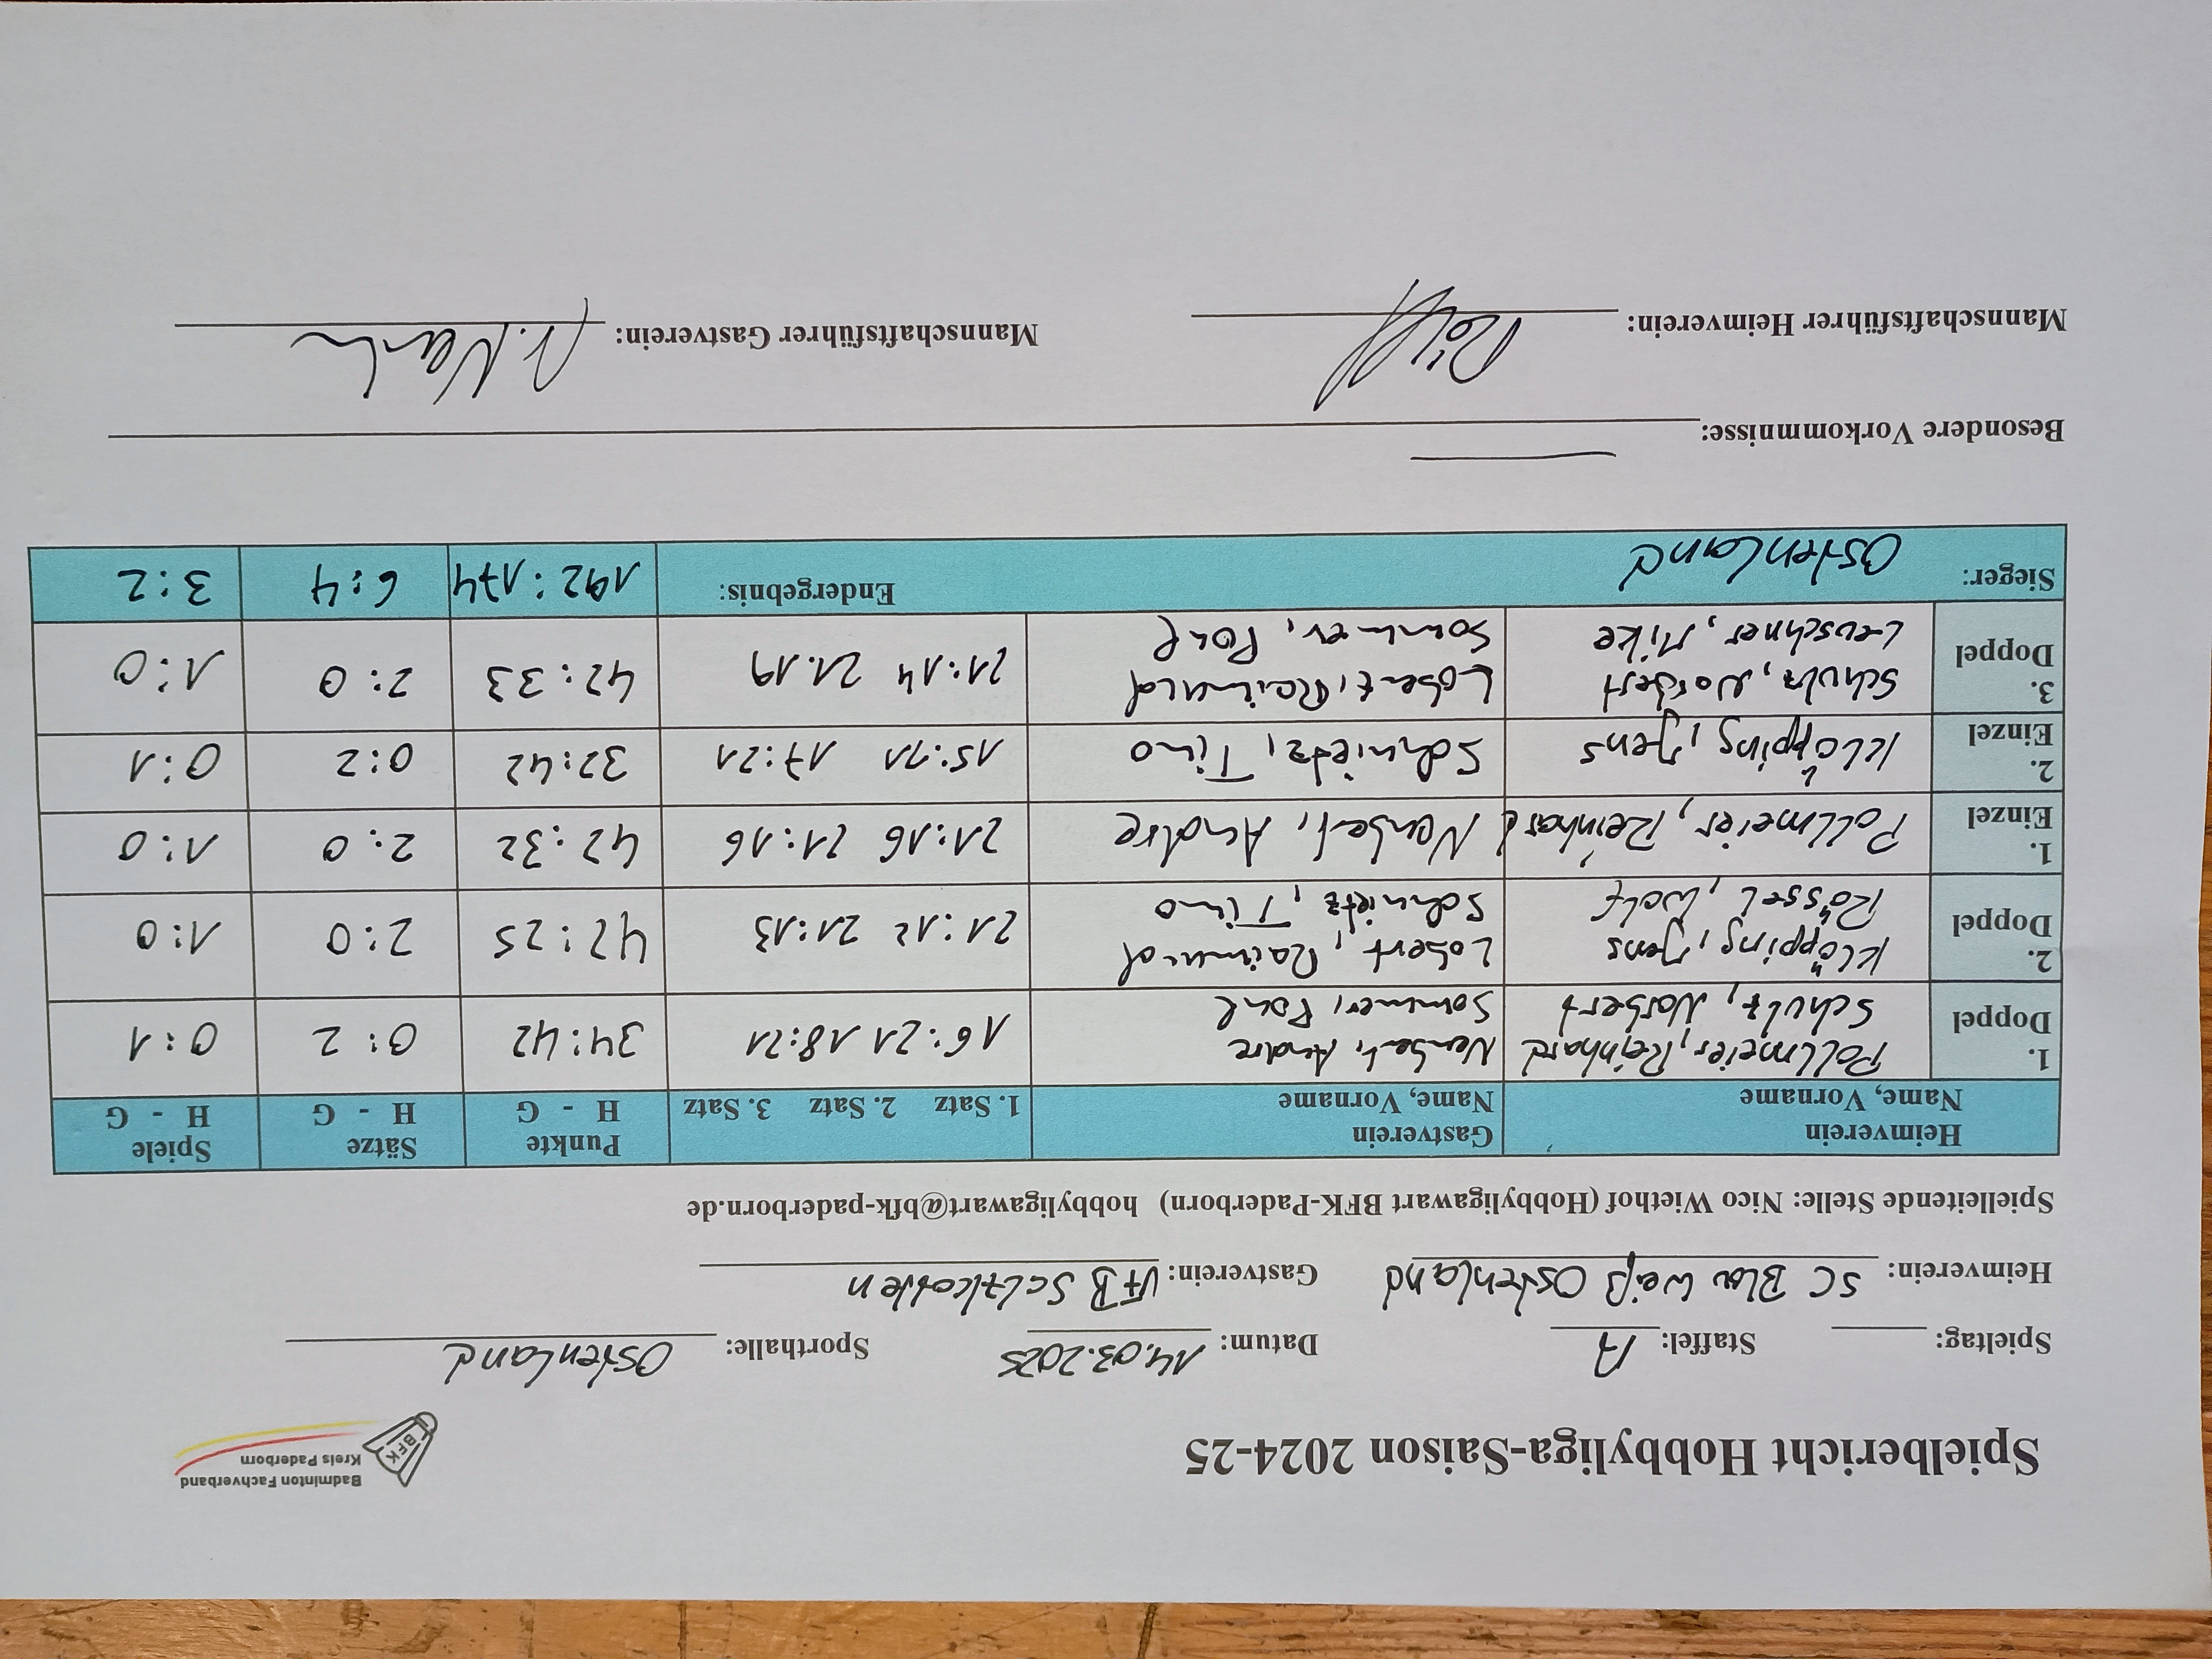 Spielbericht Hobbyliga-Saison 2024-25
Badminton Fachverband
Kreis Paderborn
BFK
Spieltag: Staffel: A Datum: 14.03.2025 Sporthalle: Ostenland
Heimverein: SC Blau Weiß Ostenland Gastverein: VfB Salzkotten
Spielleitende Stelle: Nico Wiethof (Hobbyligawart BFK-Paderborn) hobbyligawart@bfk-paderborn.de
Heimverein Gastverein Punkte Sätze Spiele
Name, Vorname Name, Vorname 1. Satz 2. Satz 3. Satz H - G H - G H - G
1. Pollmeier, Reinhard Andre 16:21 18:21 34:42 0:2 0:1
Doppel Schulz, Norbert Sommer,
2. Klöpping, Jens Lobert, Raimund 21:12 21:13 42:25 2:0 1:0
Doppel Rössel, Wolf Schmietz, Timo
1. Pollmeier, Reinhard Andre 21:16 21:16 42:32 2:0 1:0
Einzel
2. Klöpping, Jens Schmietz, Timo 15:21 17:21 32:42 0:2 0:1
Einzel
3. Schulz, Norbert Lobert, Raimund 21:14 21.19 42:33 2:0 1:0
Doppel Leuschner, Mike Sommer,
Sieger: Ostenland Endergebnis: 192:174 6:4 3:2
Besondere Vorkommnisse:
Mannschaftsführer Heimverein: Mannschaftsführer Gastverein: